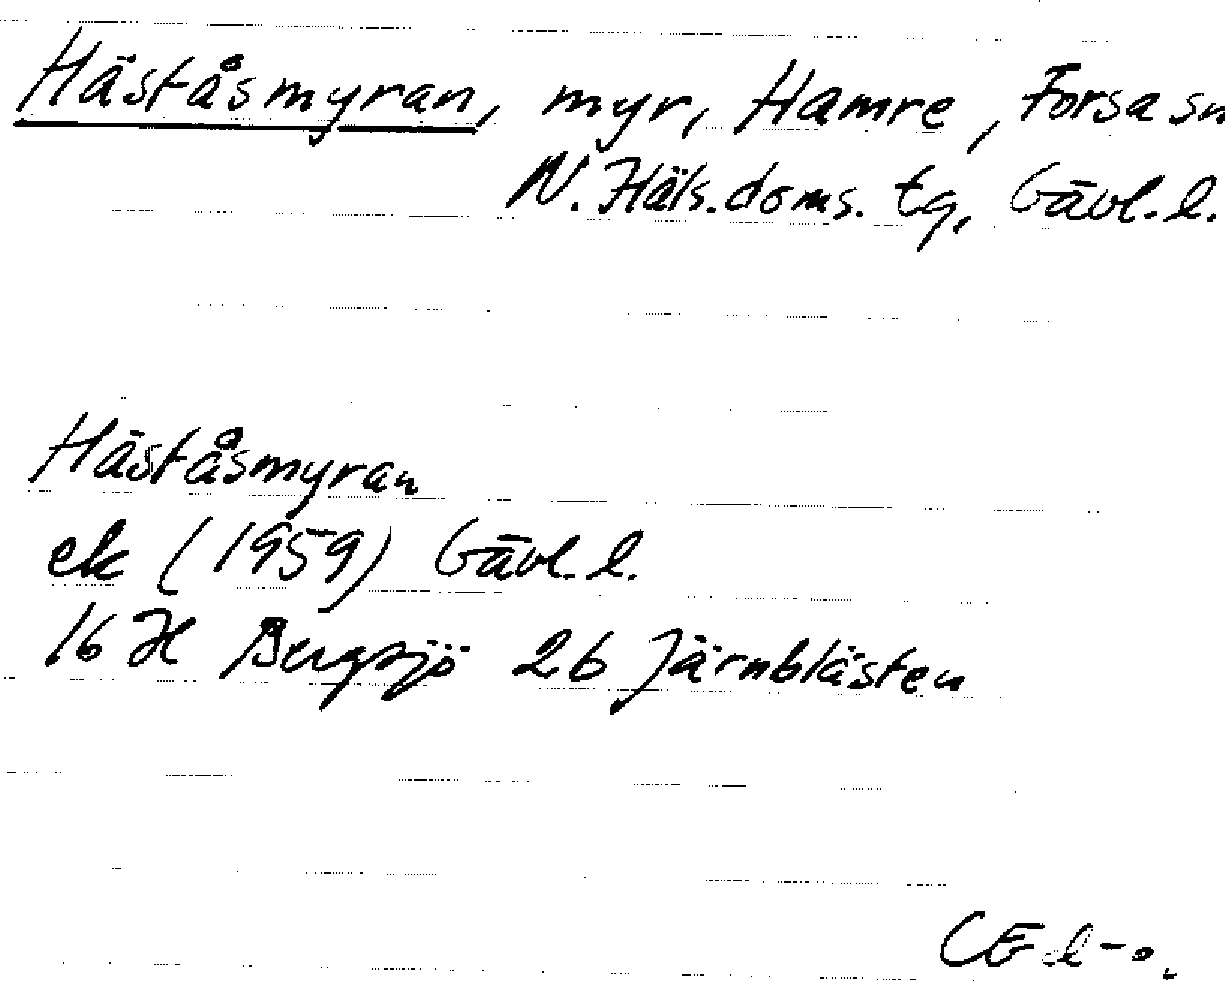 Häståsmyran, myr, Hamre, Forsa sn
N. Häls. doms. tg, Gävl. l.
Häståsmyran
ek (1959) Gävl. l.
16 H Bergsjö 2b Järnblästen